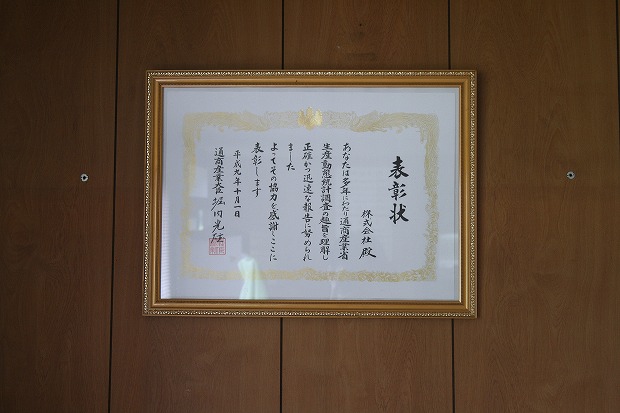 表彰状
株式会社 殿
あなたは多年にわたり通商産業省
生産動態統計調査の趣旨を理解し
正確かつ迅速な報告に努められ
ました
よってその協力を感謝しここに
表彰します
平成九年十月一日
通商産業大臣 堀内光雄